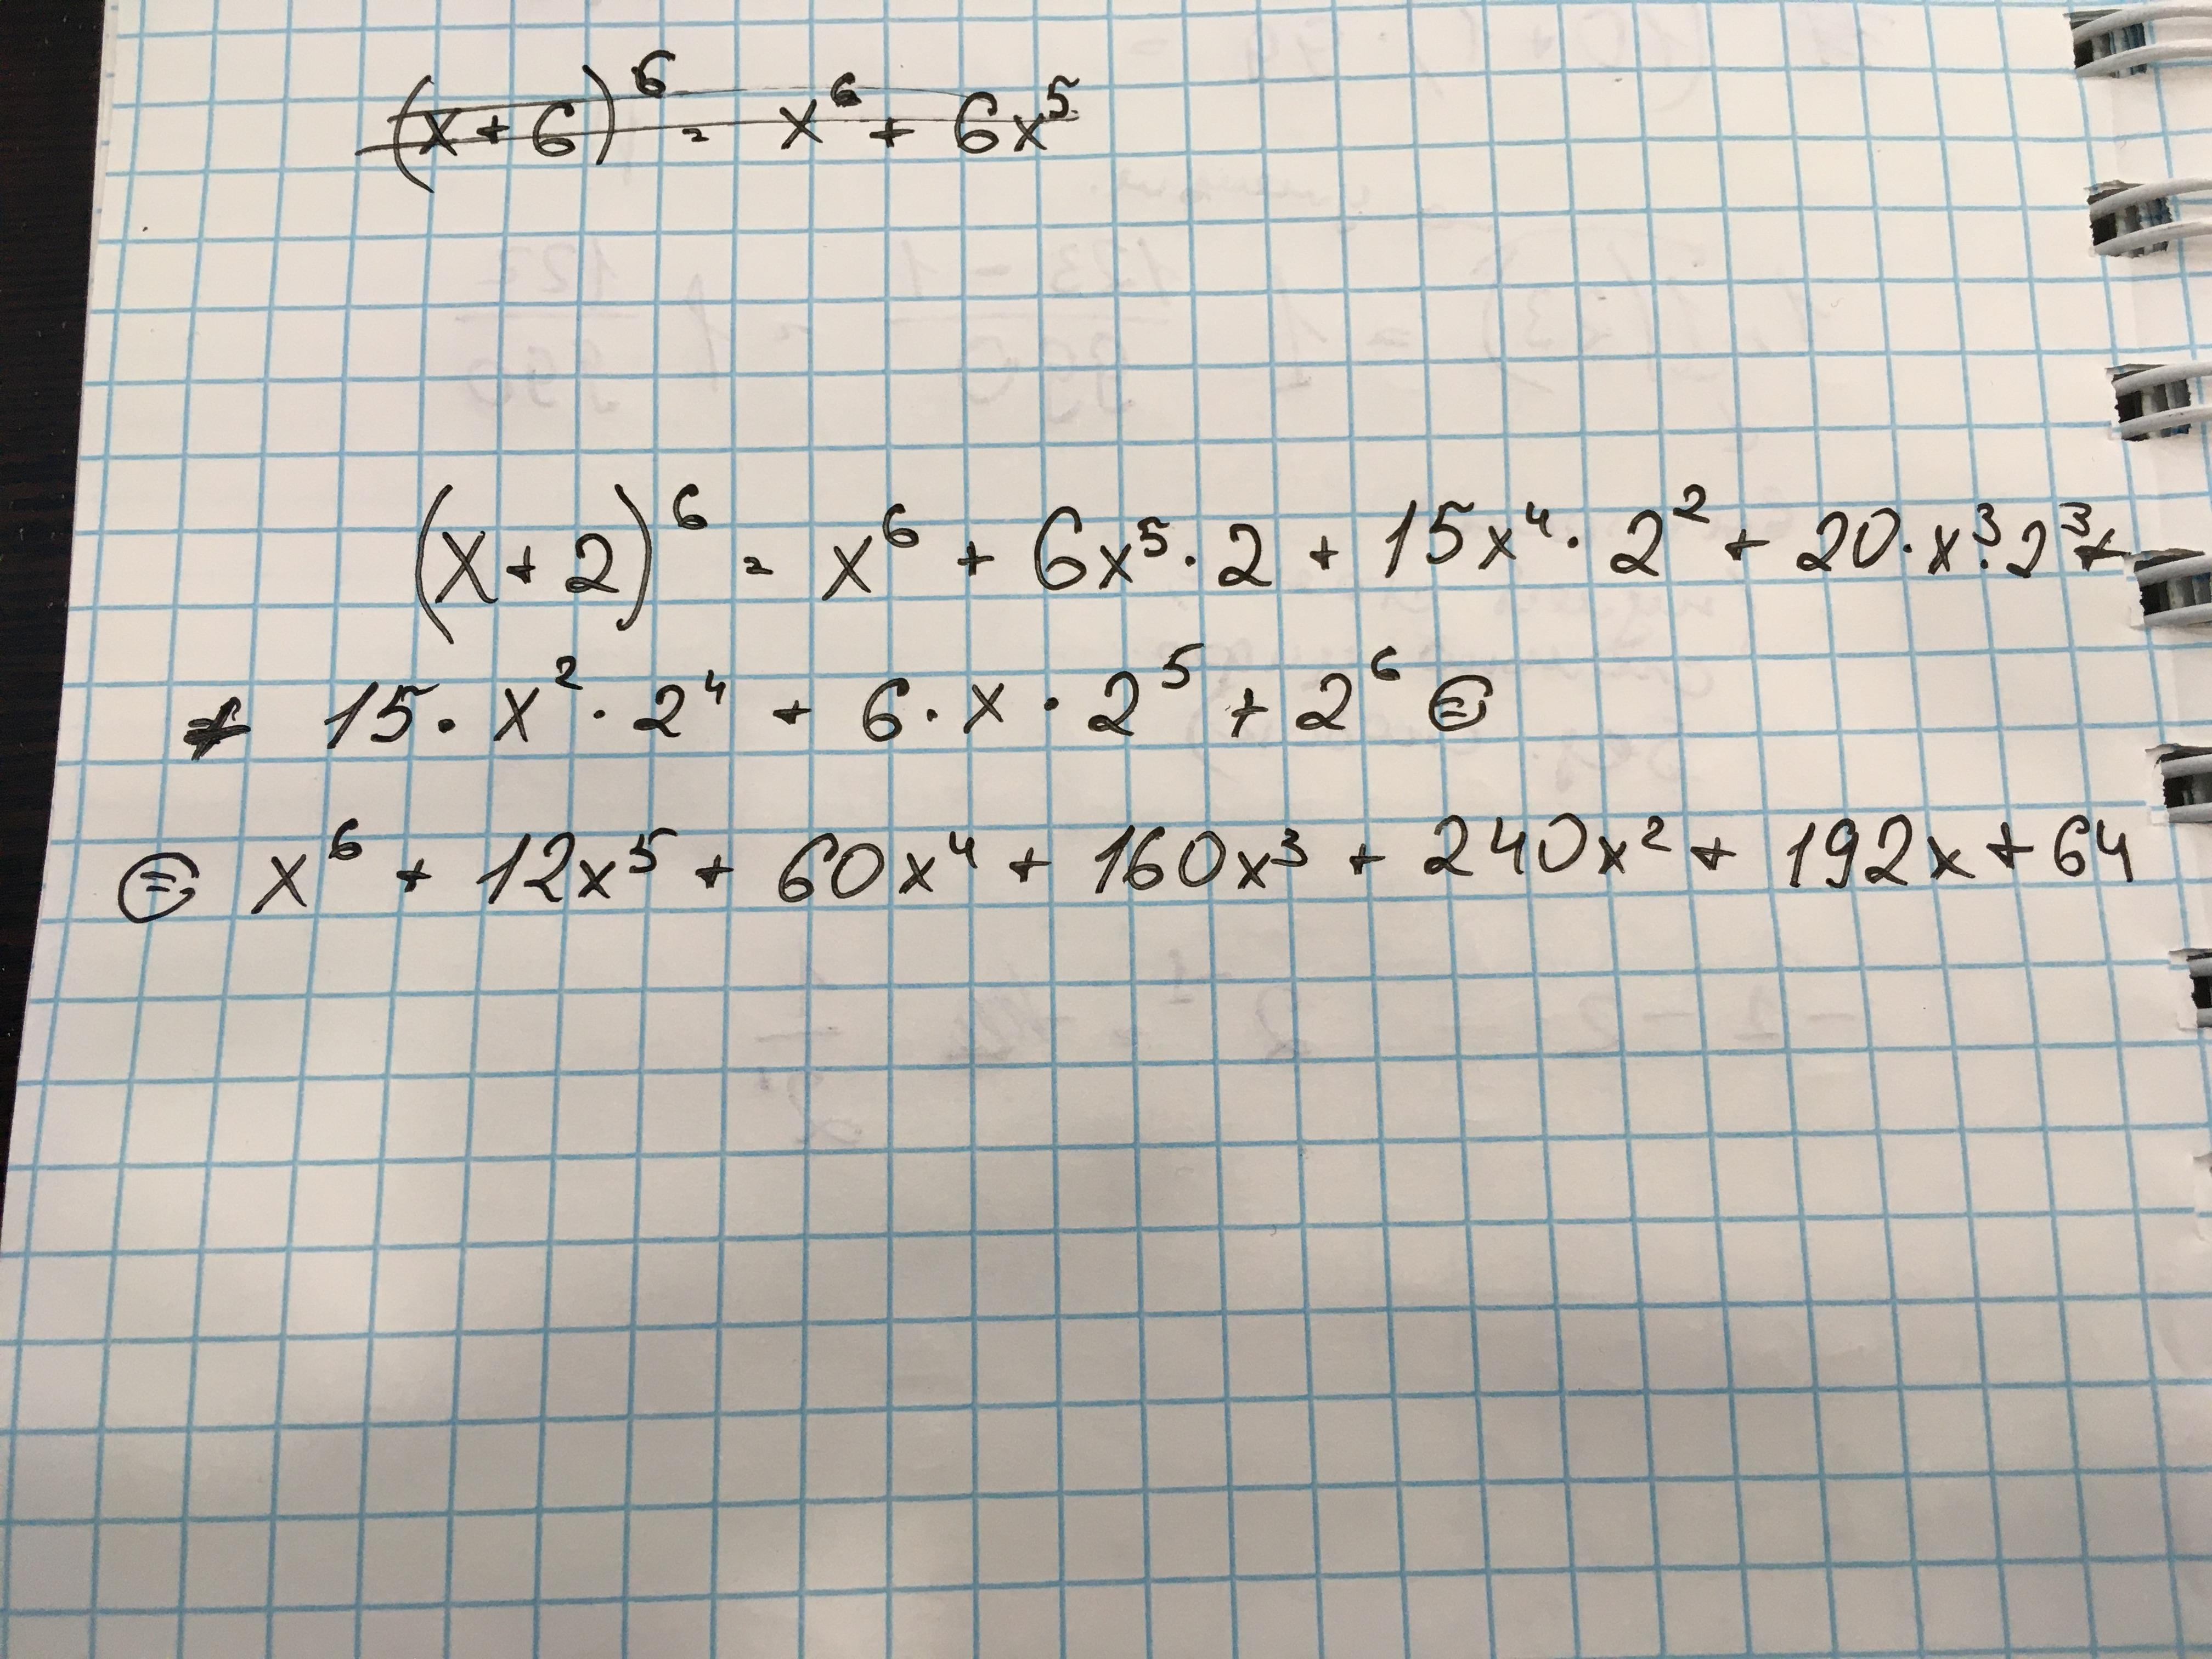 (x+6)⁶ = x⁶ + 6x⁵
(x+2)⁶ = x⁶ + 6x⁵·2 + 15x⁴·2² + 20·x³·2³+
+ 15·x²·2⁴ + 6·x·2⁵ + 2⁶ ⊜
⊜ x⁶ + 12x⁵ + 60x⁴ + 160x³ + 240x² + 192x + 64